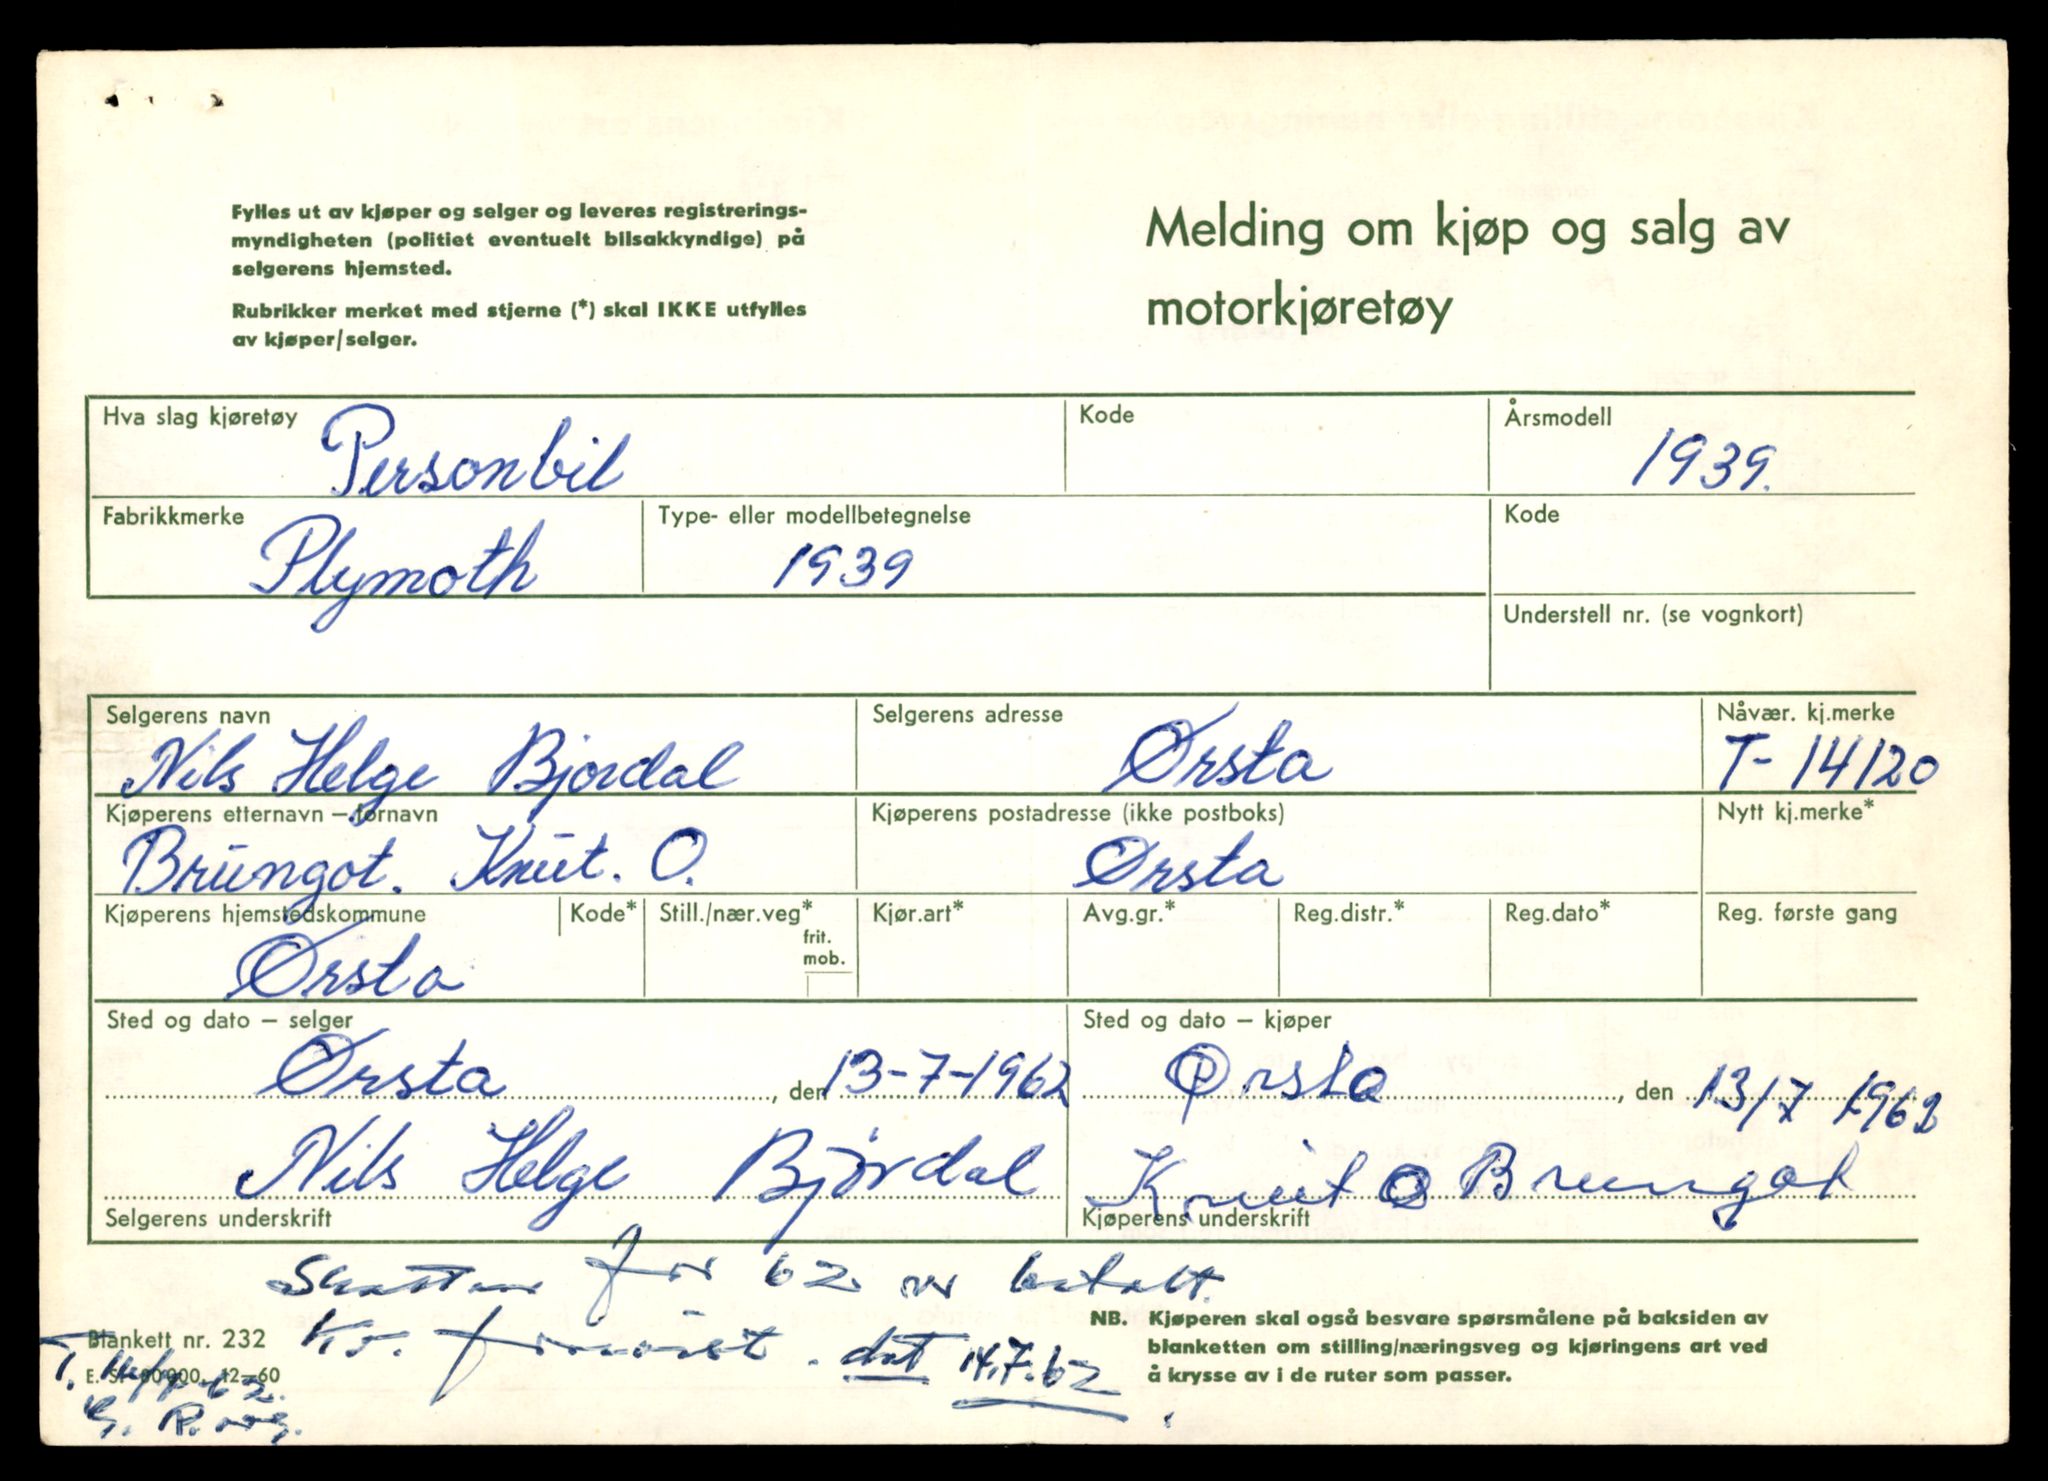 Fylles ut av kjøper og selger og leveres registrerings-
myndigheten (politiet eventuelt bilsakkyndige) på
selgerens hjemsted.
Rubrikker merket med stjerne (*) skal IKKE utfylles
av kjøper/selger.
Melding om kjøp og salg av
motorkjøretøy
Hva slag kjøretøy
Personbil
Kode
Årsmodell
1939.
Fabrikkmerke
Plymoth
Type- eller modellbetegnelse
1939
Kode
Understell nr. (se vognkort)
Selgerens navn
Nils Helge Bjørdal
Selgerens adresse
Ørsta
Nåvær. kj.merke
T-14120
Kjøperens etternavn – fornavn
Brungot. Knut. O.
Kjøperens postadresse (ikke postboks)
Ørsta
Nytt kj.merke*
Kjøperens hjemstedskommune
Ørsta
Kode*
Still./nær.veg*
frit.
mob.
Kjør.art*
Avg.gr.*
Reg.distr.*
Reg.dato*
Reg. første gang
Sted og dato – selger
Ørsta, den 13-7-1962
Nils Helge Bjørdal
Selgerens underskrift
Sted og dato – kjøper
Ørsta, den 13/7 1962
Knut O Brungot
Kjøperens underskrift
Skatten for 62 er betalt.
dat 14.7.62
Blankett nr. 232
12–60
NB. Kjøperen skal også besvare spørsmålene på baksiden av
blanketten om stilling/næringsveg og kjøringens art ved
å krysse av i de ruter som passer.